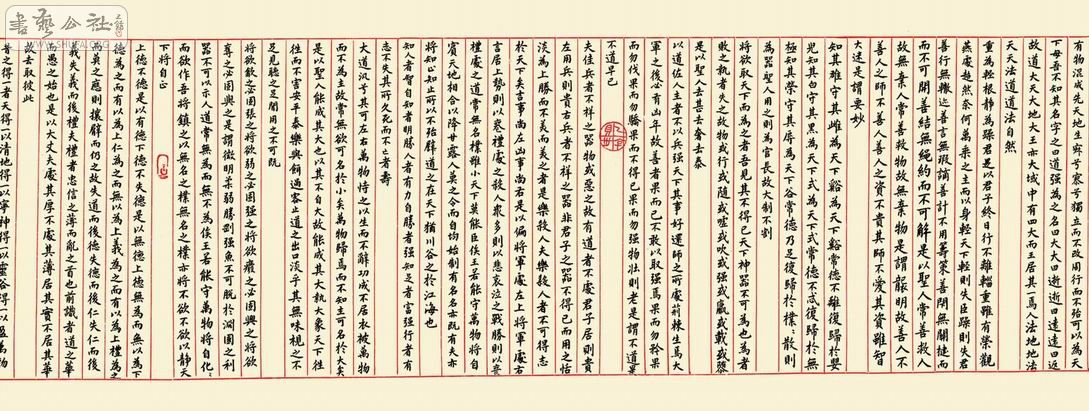 有物混成先天地生寂兮寥兮獨立而不改周行而不殆可以為天
下母吾不知其名字之曰道强為之名曰大大曰逝逝曰遠遠曰返
故道大天大地大王亦大域中有四大而王居其一焉人法地地法
天天法道道法自然
重為輕根静為躁君是以君子終日行不離輜重雖有榮觀
燕處超然奈何萬乘之主而以身輕天下輕則失臣躁則失君
善行無轍迹善言無瑕謫善計不用籌策善閉無關揵而
而不可開善結無繩約而不可解是以聖人常善救人
故無棄人常善救物故無棄物是謂襲明故善人不
善人之師不善人善人之資不貴其師不愛其資雖智
大迷是謂要妙
知其雄守其雌為天下谿為天下谿常德不離復歸於嬰
兒知其白守其黑為天下式為天下式常德不忒復歸於無
極知其榮守其辱為天下谷常德乃足復歸於樸樸散則
為器聖人用之則為官長故大制不割
將欲取天下而為之者吾見其不得已天下神器不可為也為者
敗之執者失之故物或行或隨或噓或吹或强或羸或載或隳
是以聖人去甚去奢去泰
以道佐人主者不以兵强天下其事好還師之所處荊棘生焉大
軍之後必有凶年故善者果而已不敢以取强焉果而勿矜果
而勿伐果而勿驕果而不得已果而勿强物壯則老是謂不道
不道早已
夫佳兵者不祥之器物或惡之故有道者不處君子居則貴
左用兵則貴右兵者不祥之器非君子之器不得已而用之恬
淡為上勝而不美而美之者是樂殺人夫樂殺人者不可得志
於天下矣吉事尚左凶事尚右是以偏將軍處左上將軍處右
言居上勢則以喪禮處之殺人眾多則以悲哀泣之戰勝則以喪
禮處之道常無名樸雖小天下莫能臣侯王若能守萬物將自
賓天地相合以降甘露人莫之令而自均始制有名名亦既有夫亦
將知止知止所以不殆譬道之在天下猶川谷之於江海也
知人者智自知者明勝人者有力自勝者强知足者富强行者有
志不失其所者久死而不亡者壽
大道汎兮其可左右萬物恃之以生而不辭功成不居衣被萬物
而不為主故常無欲可名於小矣萬物歸焉而不知主可名於大矣
是以聖人能成其大也以其不自大故能成其大執大象天下往
往而不害安平泰樂與餌過客止道之出口淡乎其無味視之不
足見聽之不足聞用之不可既
將欲歙之必固張之將欲弱之必固强之將欲廢之必固興之將欲
奪之必固與之是謂微明柔弱勝剛强魚不可脫於淵國之利
器不可以示人道常無為而無不為侯王若能守萬物將自化
而欲作吾將鎮之以無名之樸無名之樸亦將不欲不欲以静天
下將自正
上德不德是以有德下德不失德是以無德上德無為而無以為下
德為之而有以為上仁為之而無以為上義為之而有以為上禮為之
而莫之應則攘臂而仍之故失道而後德失德而後仁失仁而後
義失義而後禮夫禮者忠信之薄而亂之首也前識者道之華
而愚之始也是以大丈夫處其厚不處其薄居其實不居其華
故去取彼此
昔之得一者天得一以清地得一以寧神得一以靈谷得一以盈萬物
書藝公社
WWW.SHUFAORG.COM